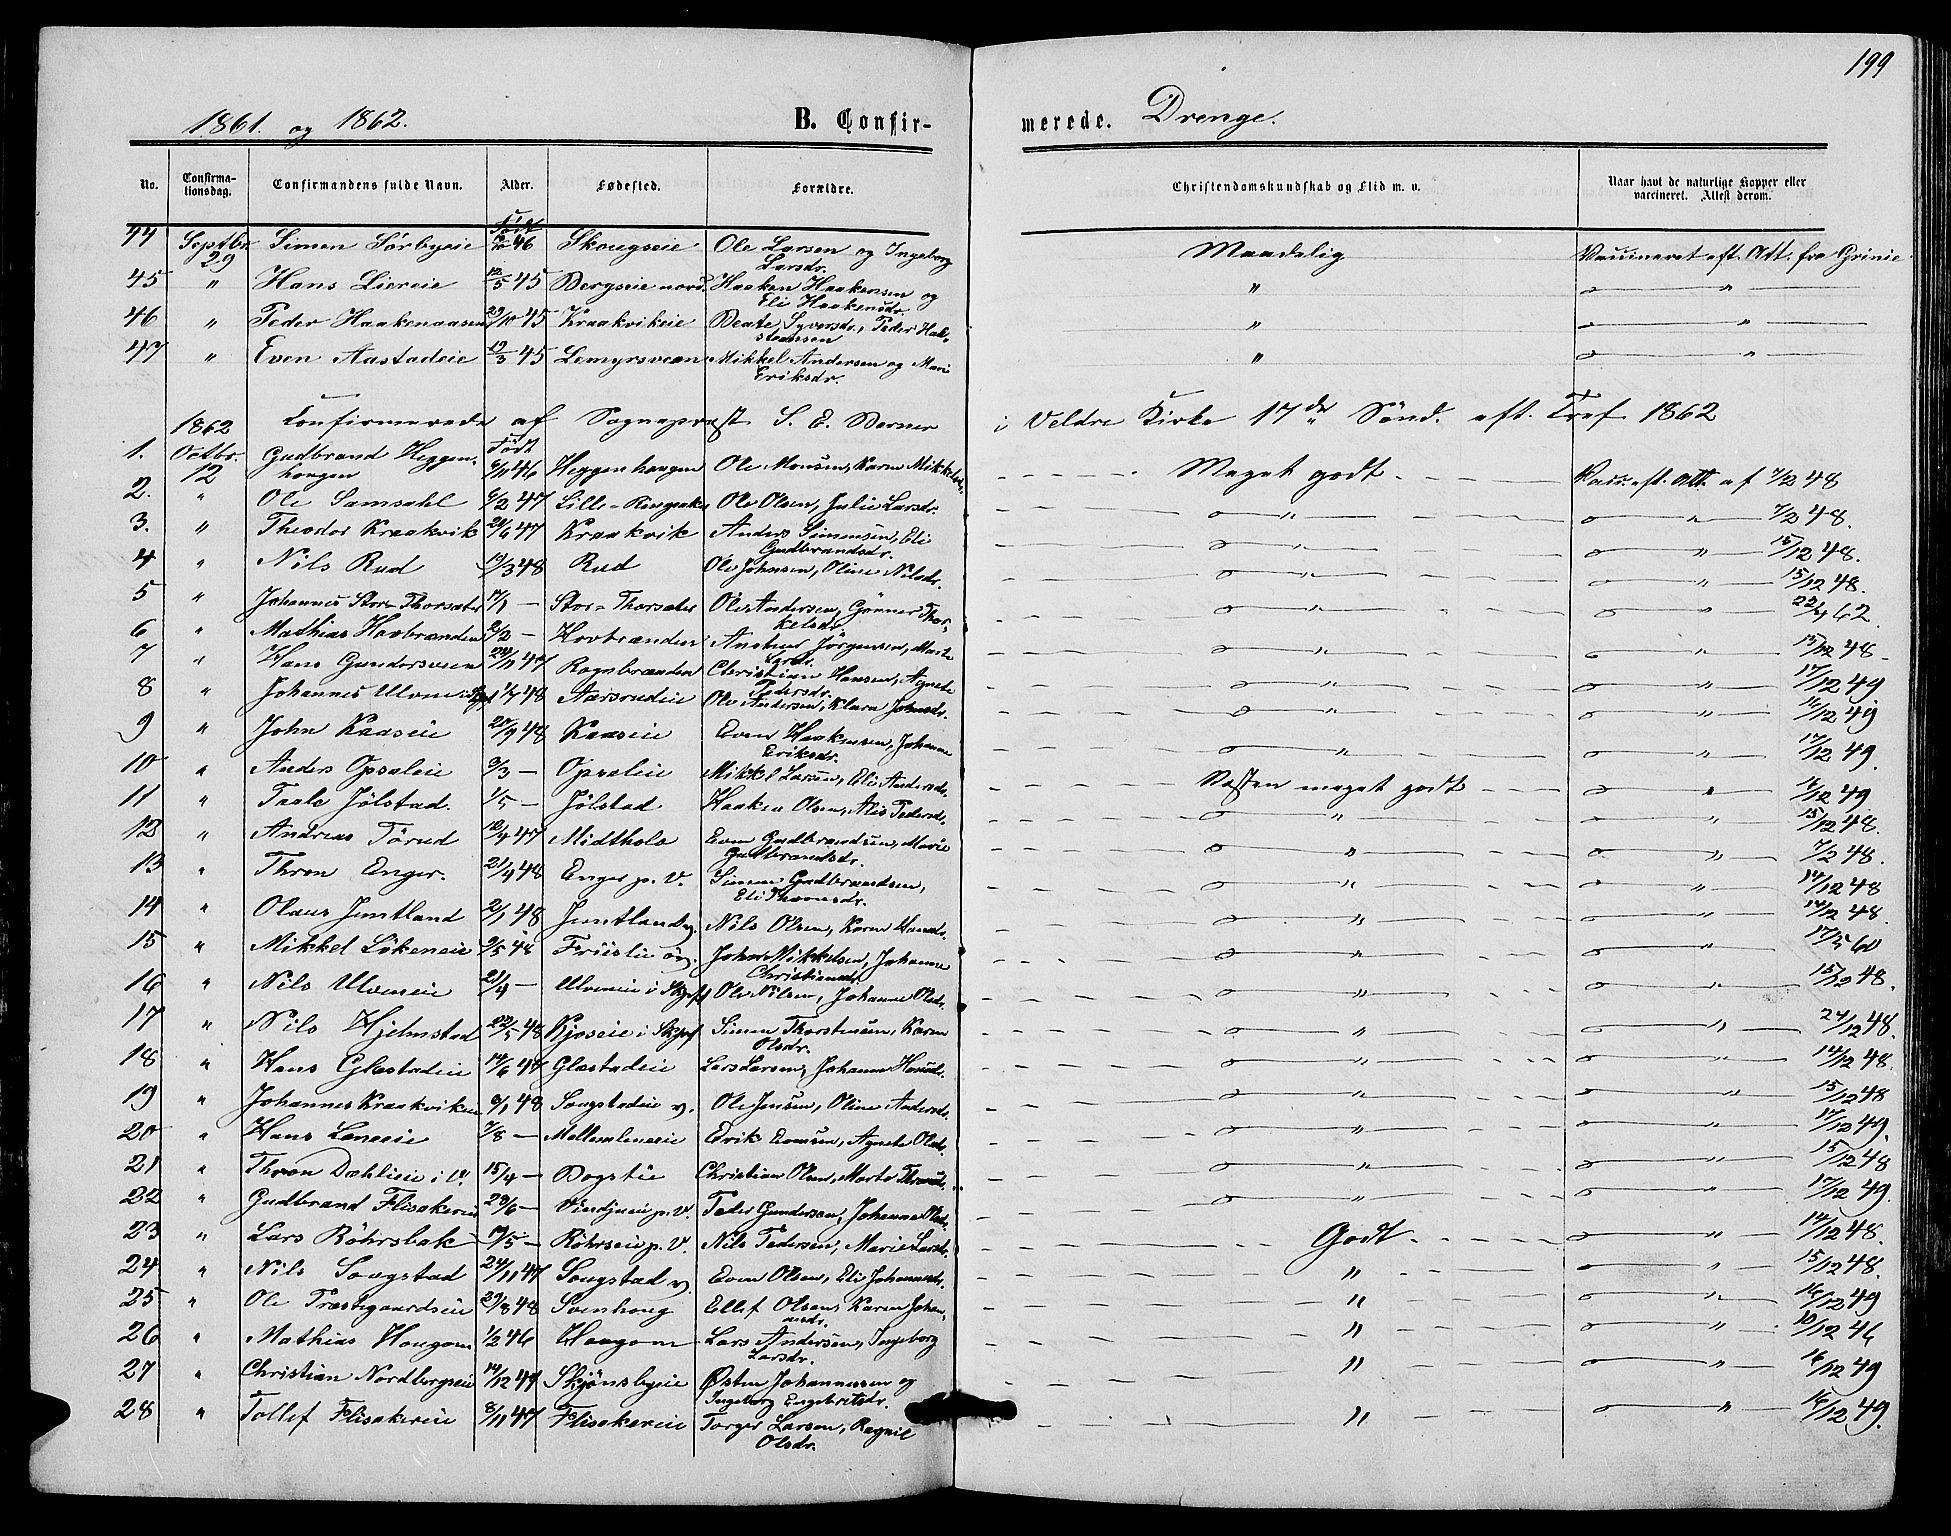 199
1861. og 1862. B. Confirmerede. Drenge.
No. Confirmationsdag. Confirmandens fulde Navn. Alder. Fødested. Forældre. Christendomskundskab og Flid m. v. Naar havt de naturlige Kopper eller vaccineret. Attest derom.
44 Septbr. 29 Simen Sörbyeie Född 46 Skougseie Ole Larsen og Ingeborg Larsdr. Maadelig Vaccineret eft. Att. fra Grinie
45 " Hans Liereie 12/5 45 Bergseie nord. Haaken Haakensen og Eli Haakensdr. " — " —
46 " Peder Haakenaasen 29/10 45 Kraakvikeie Beate Syversdr., Peder Halstensen " — " —
47 " Even Aastadeie 19/3 45 Lemyrsveen Mikkel Andersen og Mari Eriksdr. " — " —
1862 Confirmerede af Sogneprest S. E. Berner i Veldre Kirke 17de Sönd. eft. Tref. 1862
1. Octbr. 12 Gudbrand Heggenhougen Född 6/11 46 Heggenhougen Ole Monsen, Karen Mikkelsdr. Meget godt Vacc. eft. Att. af 7/2 48
2. " Ole Samsahl 6/2 47 Lille-Ringsaker Ole Olsen, Julie Larsdr. — " — — " — 7/2 48.
3. " Theodor Kraakvik 20/6 47 Kraakvik Anders Simensen, Eli Gudbrandsdr. — " — — " — 15/12 48.
4 " Nils Rud 9/3 48 Rud Ole Johnsen, Oline Nilsdr. — " — — " — 15/12 48.
5 " Johannes Stor-Thorsæter 17/1 — Stor-Thorsæter Ole Andersen, Gönner Thorkelsdr. — " — — " — 22/4 62.
6 " Mathias Hovbrænden 2/2 — Hovbrænden Anders Jörgensen, Marte Larsdr. — " — — " — 15/12 48
7 " Hans Gundersveen 24/11 47 Rognbrænden Christian Hansen, Agnete Pedersdr. — " — — " — 17/12 49
8 " Johannes Ulven 1/4 48 Aarsrudeie Ole Andersen, Klara Johnsdr. — " — — " — 16/12 49
9 " John Kaaseie 20/9 48 Kaaseie Even Haakensen, Johanne Eriksdr. — " — — " — 17/12 49.
10 " Anders Opsaleie 9/3 — Opsaleie Mikkel Larsen, Eli Andersdr. Næsten meget godt — " — 16/12 49
11 " Paale Jölstad. 1/5 — Jölstad Haaken Olsen, Alis Pedersdr. — " — — " — 15/12 48.
12 " Andreas Törud 12/4 47 Midtholo Even Gudbrandsen, Marie Gudbrandsdr. — " — — " — 7/2 48.
13 " Thron Enger. 21/4 48 Enger p. V. Simen Gudbrandsen, Eli Thronsdr. — " — — " — 14/12 48
14 " Olaus Jemtland 2/1 48 Jemtland Nils Olsen, Karen Hansdr. — " — — " — 14/12 48.
15 " Mikkel Lökeneie 9/5 48 Friislie øv. John Mikkelsen, Johanne Christiansdr. — " — — " — 17/5 60
16 " Nils Ulveneie 21/4 — Ulveneie i Ole Nilsen, Johanne Olsdr. — " — — " — 15/12 48.
17 " Nils Hjelmstad 22/5 48 Kjoseie i Simen Thorstensen, Karen Olsdr. — " — — " — 24/12 48.
18 " Hans Glæstadeie 14/6 48 Glæstadeie Lars Larsen, Johanne Hansdr. — " — — " — 14/12 48.
19 " Johannes Kraakvikeie 6/1 48 Sougstadeie v. Ole Jensen, Oline Andersdr. — " — — " — 15/12 48
20 " Hans Leneeie 7/8 — Mellemleneeie Erik Evensen, Agnete Olsdr. — " — — " — 17/12 49.
21 " Thron Dæhlieie i V. 15/4 — Bogstie Christian Olsen, Marte Thronsdr. — " — — " — 15/12 48
22 " Gudbrand Flisakereie 23/6 — Vindjueie p. V. Peder Gundersen, Johanne Olsdr. — " — — " — 17/12 49.
23 " Lars Röhrsbak 17/5 — Röhrseie p. V. Nils Pedersen, Marie Larsdr. Godt — " — 14/12 48.
24 " Nils Sougstad 24/11 47 Sougstad v. Even Olsen, Eli Johannesdr. " — " — 15/12 48.
25 " Ole Prestegaardseie 29/8 48 Svenhoug Ellef Olsen, Karen Johannesdr. " — " — 16/12 49
26 " Mathias Hougom 1/2 46 Hougom Lars Andersen, Ingeborg Larsdr. " — " — 10/12 46
27 " Christian Nordbergseie 14/12 47 Skjönsbyeie Østen Johannessen og Ingeborg Engebritsdr. " — " — 16/12 49
28 " Tollef Flisakereie 8/11 47 Flisakereie Torger Larsen, Ragnil Olsdr. " — " — 16/12 49.